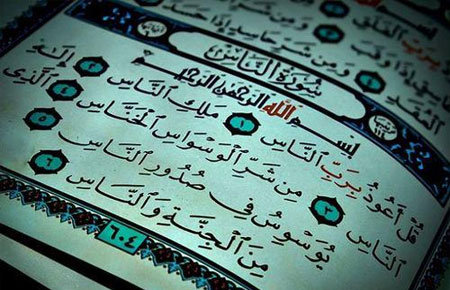 بِرَبِّ ٱلْفَلَقِ
إِذَا وَقَبَ ٣ وَمِن شَرِّ
ٱلْعُقَدِ ٤ وَمِن شَرِّ حَاسِدٍ إِذَا حَسَدَ
سُورَةُ النَّاسِ
بِسْمِ ٱللَّهِ ٱلرَّحْمَٰنِ ٱلرَّحِيمِ
قُلْ أَعُوذُ بِرَبِّ ٱلنَّاسِ ١ مَلِكِ ٱلنَّاسِ ٢ إِلَٰهِ
ٱلنَّاسِ ٣ مِن شَرِّ ٱلْوَسْوَاسِ ٱلْخَنَّاسِ ٤ ٱلَّذِى
يُوَسْوِسُ فِى صُدُورِ ٱلنَّاسِ ٥
مِنَ ٱلْجِنَّةِ وَٱلنَّاسِ ٦
٦٠٤